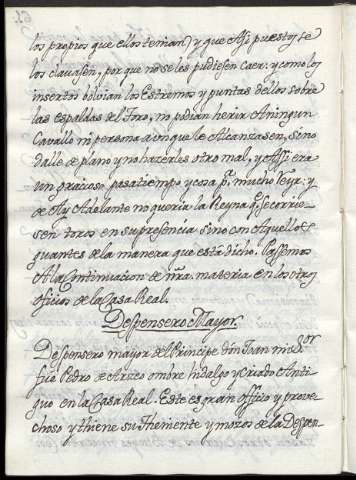 los propios que ellos tenian, y que Assi puestos se
los clavasen, por que no se les pudiesen caer: y como los
insertos bolvian los Estremos y puntas dellos sobre
las espaldas del toro, no podian herir A ningun
Cavallo ni persona aunque le Alcanzasen, sino
dalle de plano y no hazerles otro mal, y Assi era
un graçioso pasatiempo y cosa pª mucho Reyr: y
de Ay Adelante no queria la Reyna q̃ se corries
sen toros en su presencia sino con Aquellos
guantes de la manera que está dicho. Passemos
A la Continuacion de nrã. materia en los otros
oficios de la Casa Real.
Despensero Mayor.
Despensero mayor del Principe don Joan mi Sor
fue Pedro de Artico ombre hidalgo y criado Anti-
guo en la Casa Real. Este es gran officio y prove-
choso y thiene su Theniente y mozos de la Despen-